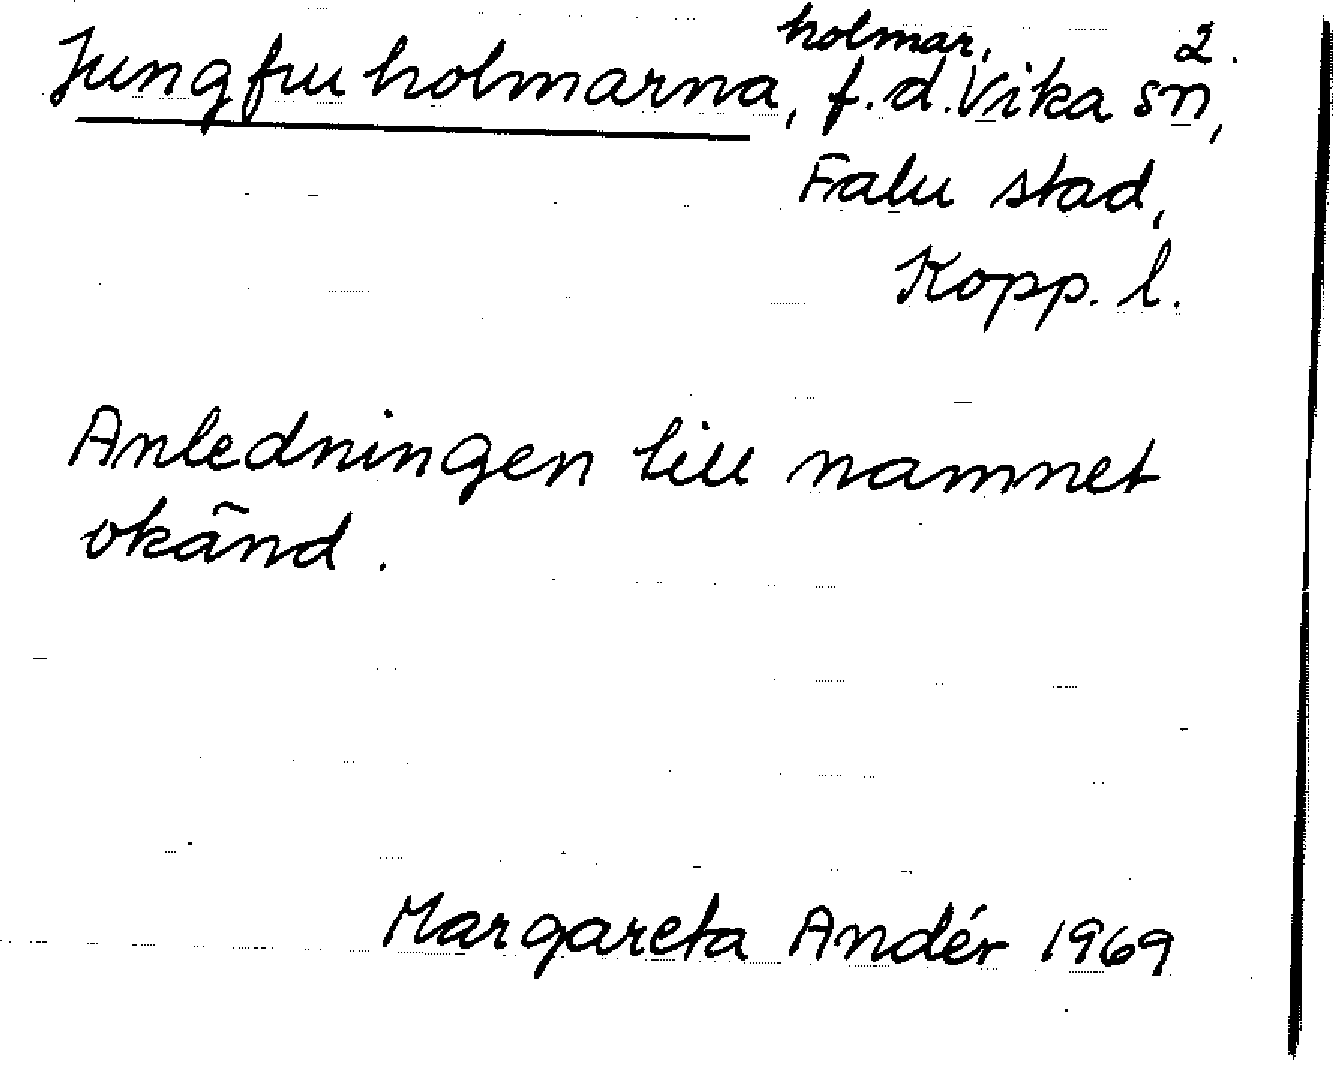 holmar, 2.
Jungfruholmarna, f.d. Vika sn,
Falu stad,
Kopp. l.
Anledningen till namnet
okänd.
Margareta Andér 1969